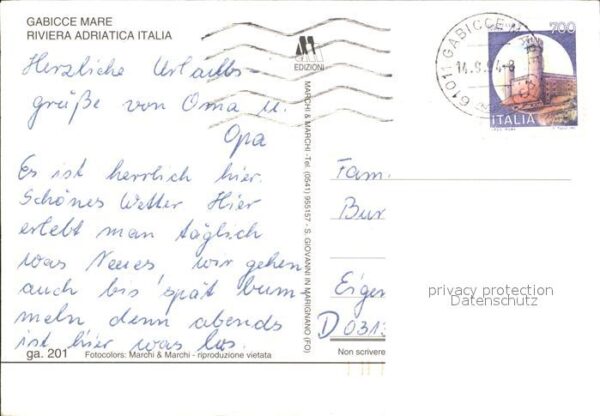 GABICCE MARE
RIVIERA ADRIATICA ITALIA
Herzliche Urlaubs-
grüße von Oma u.
Opa
Es ist herrlich hier.
Schönes Wetter Hier
erlebt man täglich
was Neues, wir gehen
auch bis spät bum-
meln denn abends
ist hier was los.
ga. 201
Fotocolors: Marchi & Marchi - riproduzione vietata
EDIZIONI
MARCHI & MARCHI - Tel. (0541) 955157 - S. GIOVANNI IN MARIGNANO (FO)
61011 GABICCE M
14.9.94-8
700
ITALIA
Fam.
Bur
Eigen
D 0313
Non scrivere
privacy protection
Datenschutz